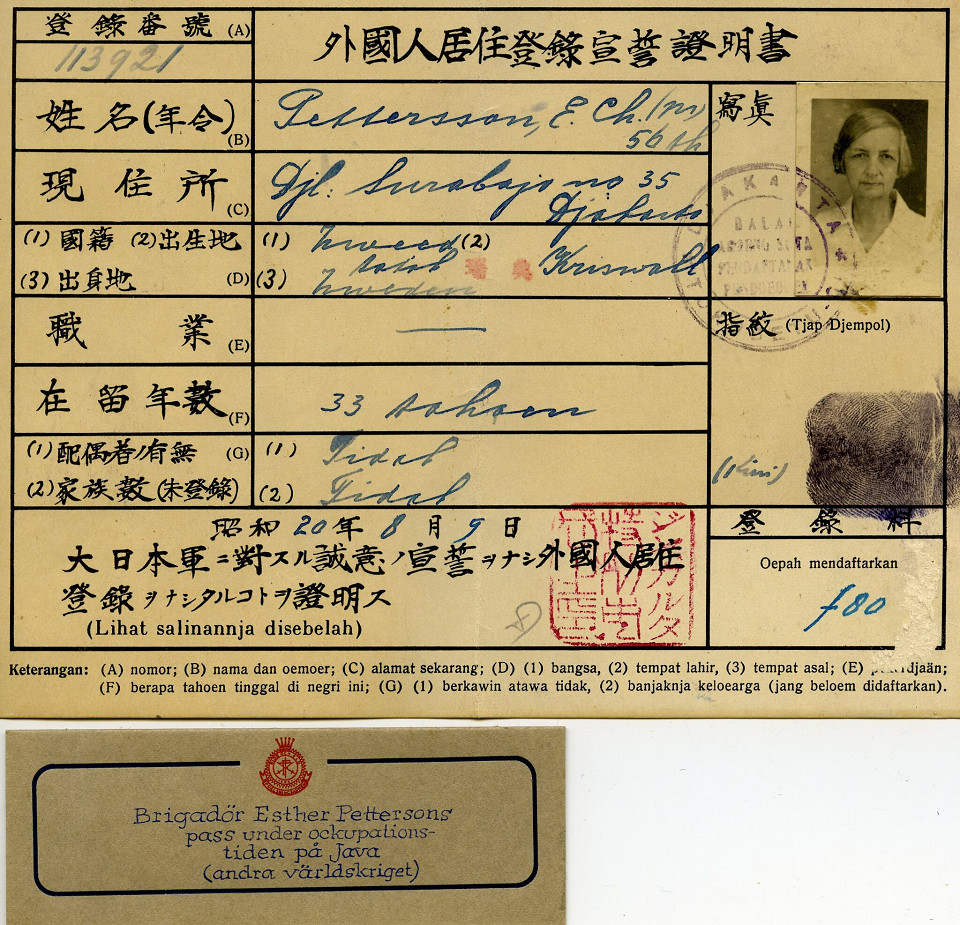 登錄番號 (A)
113921
外國人居住登錄宣誓證明書
姓名(年令) (B)
Pettersson, E. Ch. (nn)
56 th
寫眞
現住所 (C)
Djl. Surabajo no 35
Djakarta
(1) 國籍 (2) 出生地
(3) 出身地 (D)
(1) Zweed (2)
瑞
(3) Zweden
DJAKARTA
BALAI
職業 (E)
指紋 (Tjap Djempol)
在留年數 (F)
33 tahoen
(1) 配偶者ノ有無 (G)
(2) 家族數 (未登錄)
(1) Tidak
(2) Tidak
(Kiri)
昭和 20 年 8 月 9 日
大日本軍ニ對スル誠意ノ宣誓ヲナシタ外國人居住
登錄ヲナシタルコトヲ證明ス
(Lihat salinannja disebelah)
ジャカルタ
登錄料
Oepah mendaftarkan
f80
Keterangan: (A) nomor; (B) nama dan oemoer; (C) alamat sekarang; (D) (1) bangsa, (2) tempat lahir, (3) tempat asal; (E)
(F) berapa tahoen tinggal di negri ini; (G) (1) berkawin atawa tidak, (2) banjaknja keloearga (jang beloem didaftarkan).
Brigadör Esther Petterssons
pass under ockupations-
tiden på Java
(andra världskriget)